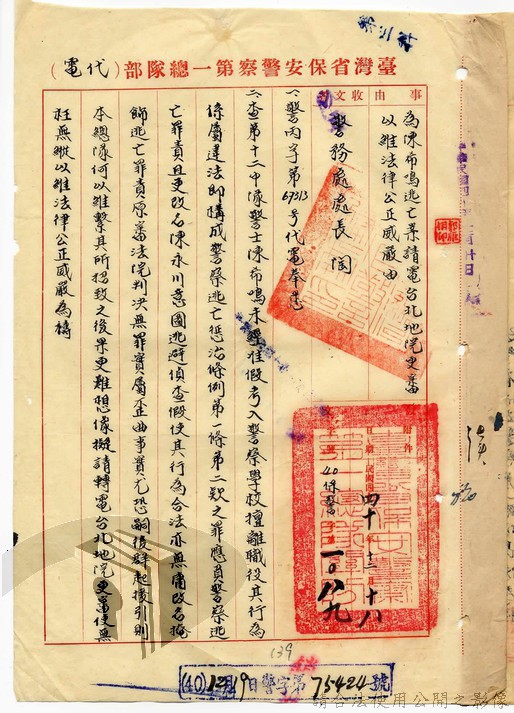 臺灣省保安警察第一總隊部（代電）
事由
收文
為陳布鳴逃亡案請電台北地院更審
以維法律公正威嚴由
警務處處長陶
一、警丙字第67313号代電奉悉
二、查第十二中隊警士陳布鳴未經准假考入警察學校擅離職役其行為
係屬違法即構成警察逃亡懲治條例第一條第二款之罪應負警察逃
亡罪責且更改名陳永川意圖逃避偵查假使其行為合法亦無庸改名掩
飾逃亡罪責原審法院判決無罪實屬歪曲事實尤恐嗣後群起援引則
本總隊何以維繫其所招致之後果更難想像擬請轉電台北地院更審使無
枉無縱以維法律公正威嚴為禱
附件
民國四十年十二月十八
40保警
一〇八九
139
(40)12月19日警字第75424號
請合法使用公開之影像